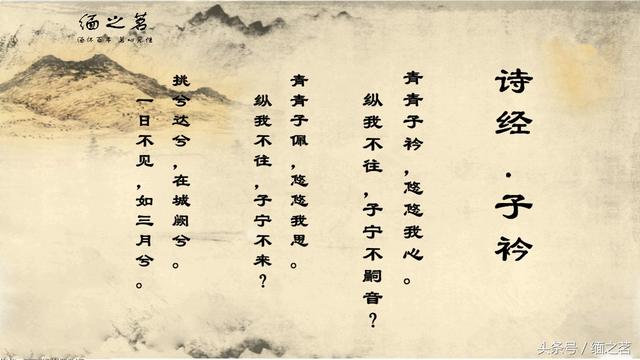 缅之茗
缅怀百年 茗心见性
诗经·子衿
青青子衿，悠悠我心。
纵我不往，子宁不嗣音？
青青子佩，悠悠我思。
纵我不往，子宁不来？
挑兮达兮，在城阙兮。
一日不见，如三月兮。
头条号 / 缅之茗